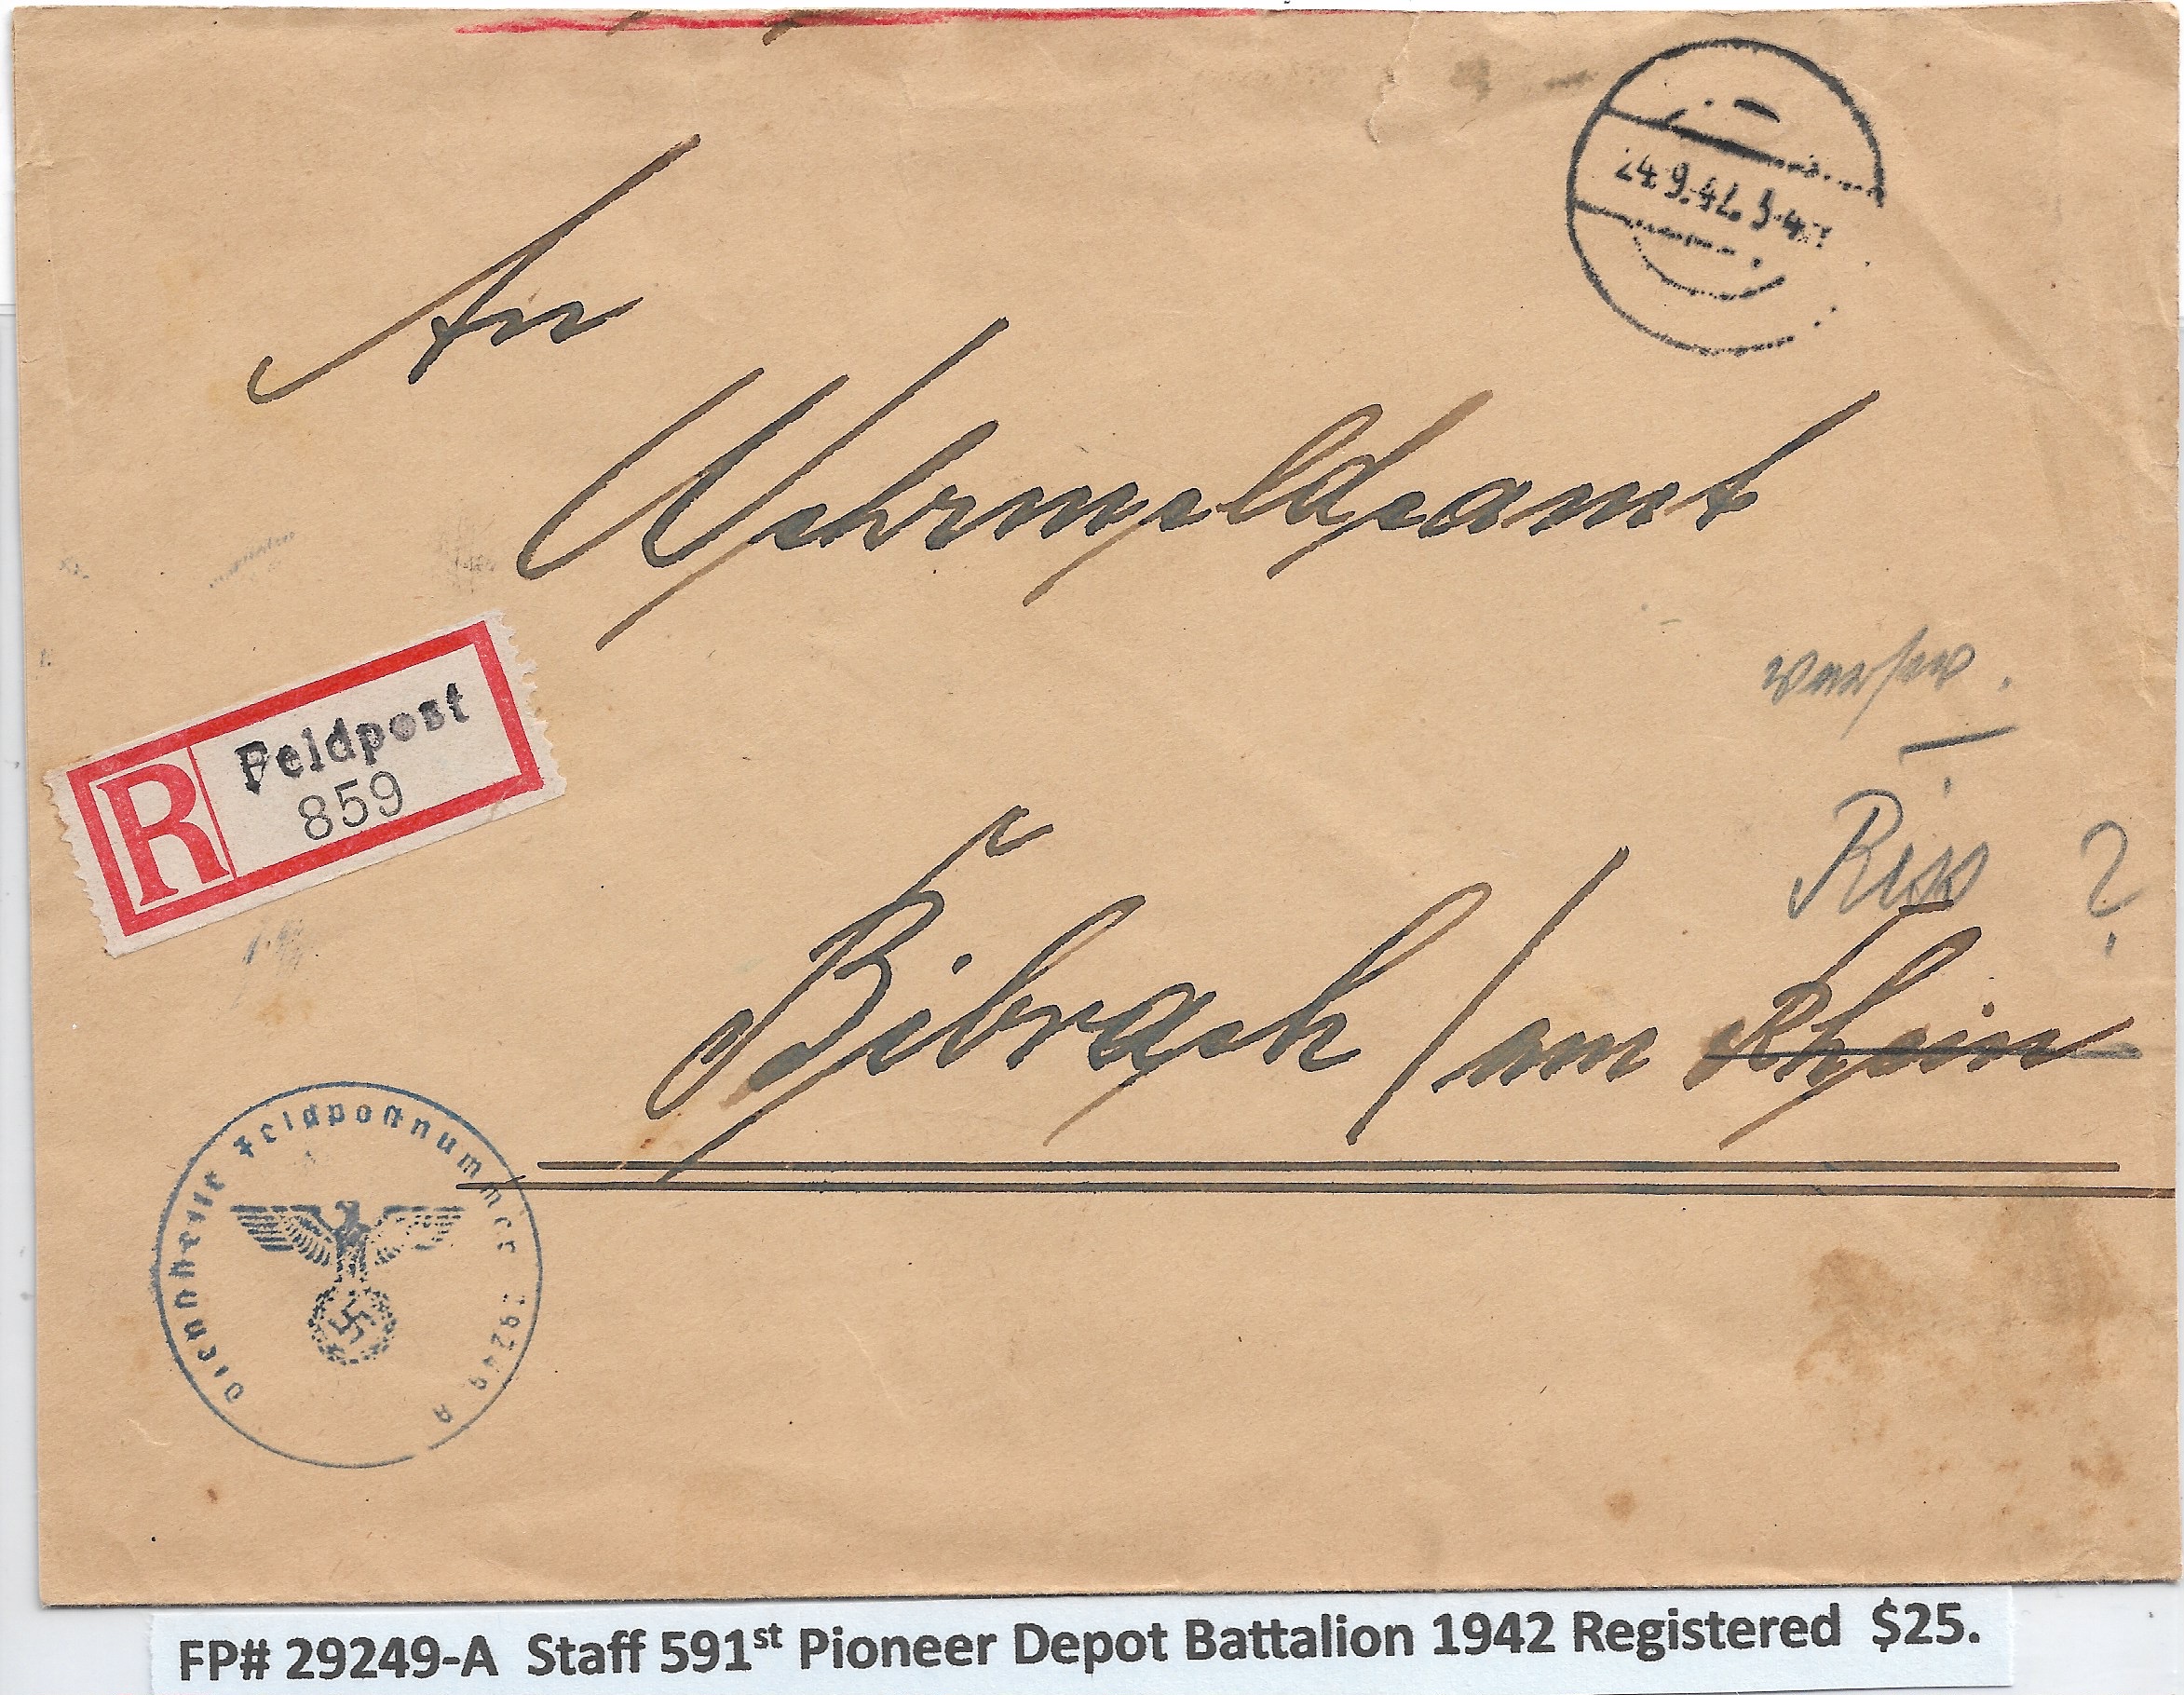 24.9.42.
An
Wehrmeldeamt
R Feldpost
859
Riss ?
Bibrach / am Rhein
Dienststelle Feldpostnummer 29249 A
FP# 29249-A Staff 591st Pioneer Depot Battalion 1942 Registered $25.